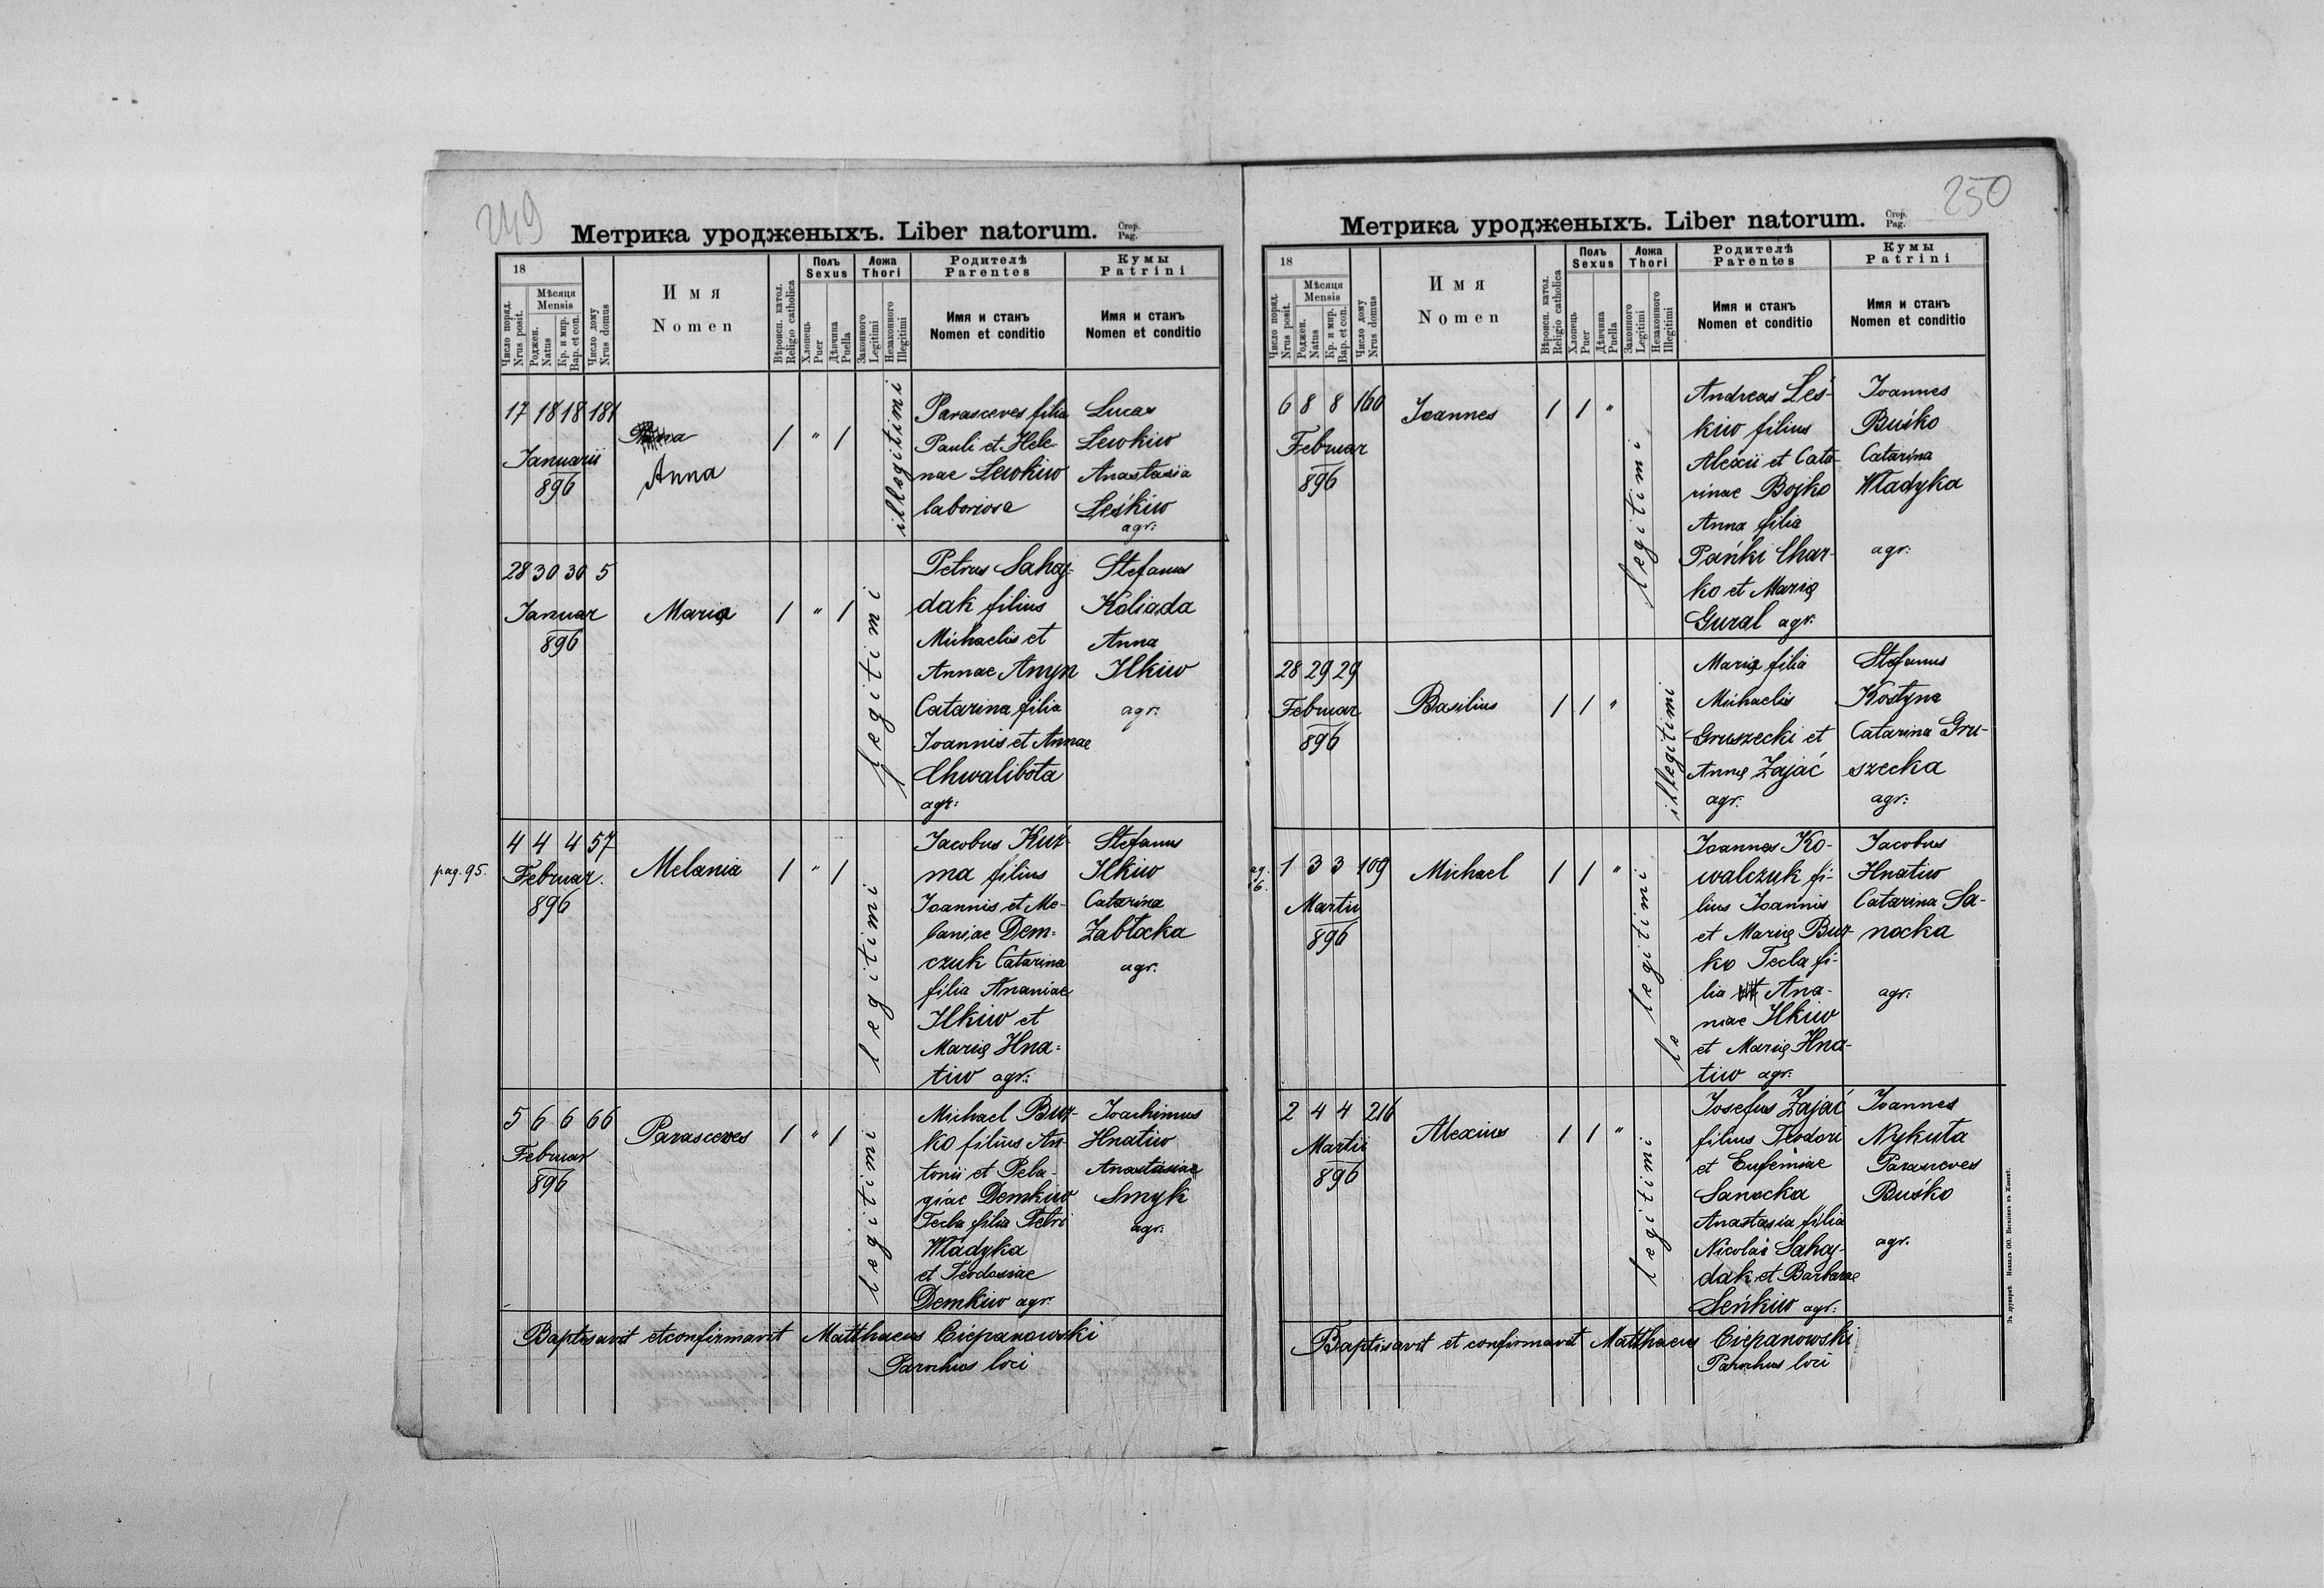 249
Метрика уродженыхъ. Liber natorum. Стор. Pag.
18
Мѣсяця
Mensis
Число поряд.
Nrus posit.
Роджен.
Natus
Кр. и мир.
Bap. et con.
Число дому
Nrus domus
Имя
Nomen
Вѣроисп. катол.
Religio catholica
Полъ
Sexus
Хлопець
Puer
Дѣвчина
Puella
Ложа
Thori
Законного
Legitimi
Незаконного
Illegitimi
Родителѣ
Parentes
Имя и станъ
Nomen et conditio
Кумы
Patrini
Имя и станъ
Nomen et conditio
17 18 18 181
Januarii
896
Anna
1 " 1
illegitimi
Parasceves filia
Pauli et Hele-
nae Lewkiw
laboriosa
Lucas
Lewkiw
Anastasia
Leśkiw
agr:
28 30 30 5
Januar
896
Maria
1 " 1
legitimi
Petrus Sahaj-
dak filius
Michaelis et
Annae Anyn
Catarina filia
Joannis et Annae
Chwalibota
agr:
Stefanus
Koliada
Anna
Ilkiw
agr:
pag. 95.
4 4 4 57
Februar.
896
Melania
1 " 1
legitimi
Jacobus Kuź-
ma filius
Joannis et Me-
laniae Dem=
czuk Catarina
filia Ananiae
Ilkiw et
Marię Hna=
tiw agr:
Stefanus
Ilkiw
Catarina
Zabłocka
agr.
5 6 6 66
Februar
896
Parasceves
1 " 1
legitimi
Michael Buź-
ko filius An-
tonii et Pela-
giae Demkiw
Tecla filia Petri
Władyka
et Teodosiae
Demkiw agr.
Joachimus
Hnatiw
Anastasiae
Smyk
agr:
Baptisavit et confirmavit Matthaeus Ciepanowski
Parochus loci
250
Метрика уродженыхъ. Liber natorum. Стор. Pag.
18
Мѣсяця
Mensis
Число поряд.
Nrus posit.
Роджен.
Natus
Кр. и мир.
Bap. et con.
Число дому
Nrus domus
Имя
Nomen
Вѣроисп. катол.
Religio catholica
Полъ
Sexus
Хлопець
Puer
Дѣвчина
Puella
Ложа
Thori
Законного
Legitimi
Незаконного
Illegitimi
Родителѣ
Parentes
Имя и станъ
Nomen et conditio
Кумы
Patrini
Имя и станъ
Nomen et conditio
6 8 8 160
Februar
896
Joannes
1 1 "
legitimi
Andreas Leś-
kiw filius
Alexii et Cata-
rinae Bojko
Anna filia
Pańki Char-
ko et Marię
Gural agr.
Joannes
Buśko
Catarina
Władyka
agr:
28 29 29
Februar
896
Basilius
1 1 "
illegitimi
Maria filia
Michaelis
Gruszecki et
Annę Zająć
agr.
Stefanus
Kostyna
Catarina Gru-
szecka
agr:
1 3 3 109
Martii
896
Michael
1 1 "
le legitimi
Joannes Ko-
walczuk fi-
lius Joannis
et Marię Buź-
ko Tecla fi-
lia Ana-
niae Ilkiw
et Marię Hna-
tiw agr.
Jacobus
Hnatiw
Catarina Sa-
nocka
agr.
2 4 4 216
Martii
896
Alexius
1 1 "
legitimi
Josefus Zająć
filius Teodori
et Eufemiae
Sanocka
Anastasia filia
Nicolai Sahaj-
dak et Barbarae
Seńkiw agr:
Joannes
Nykuta
Parasceves
Buśko
agr.
Baptisavit et confirmavit Matthaeus Ciepanowski
Parochus loci